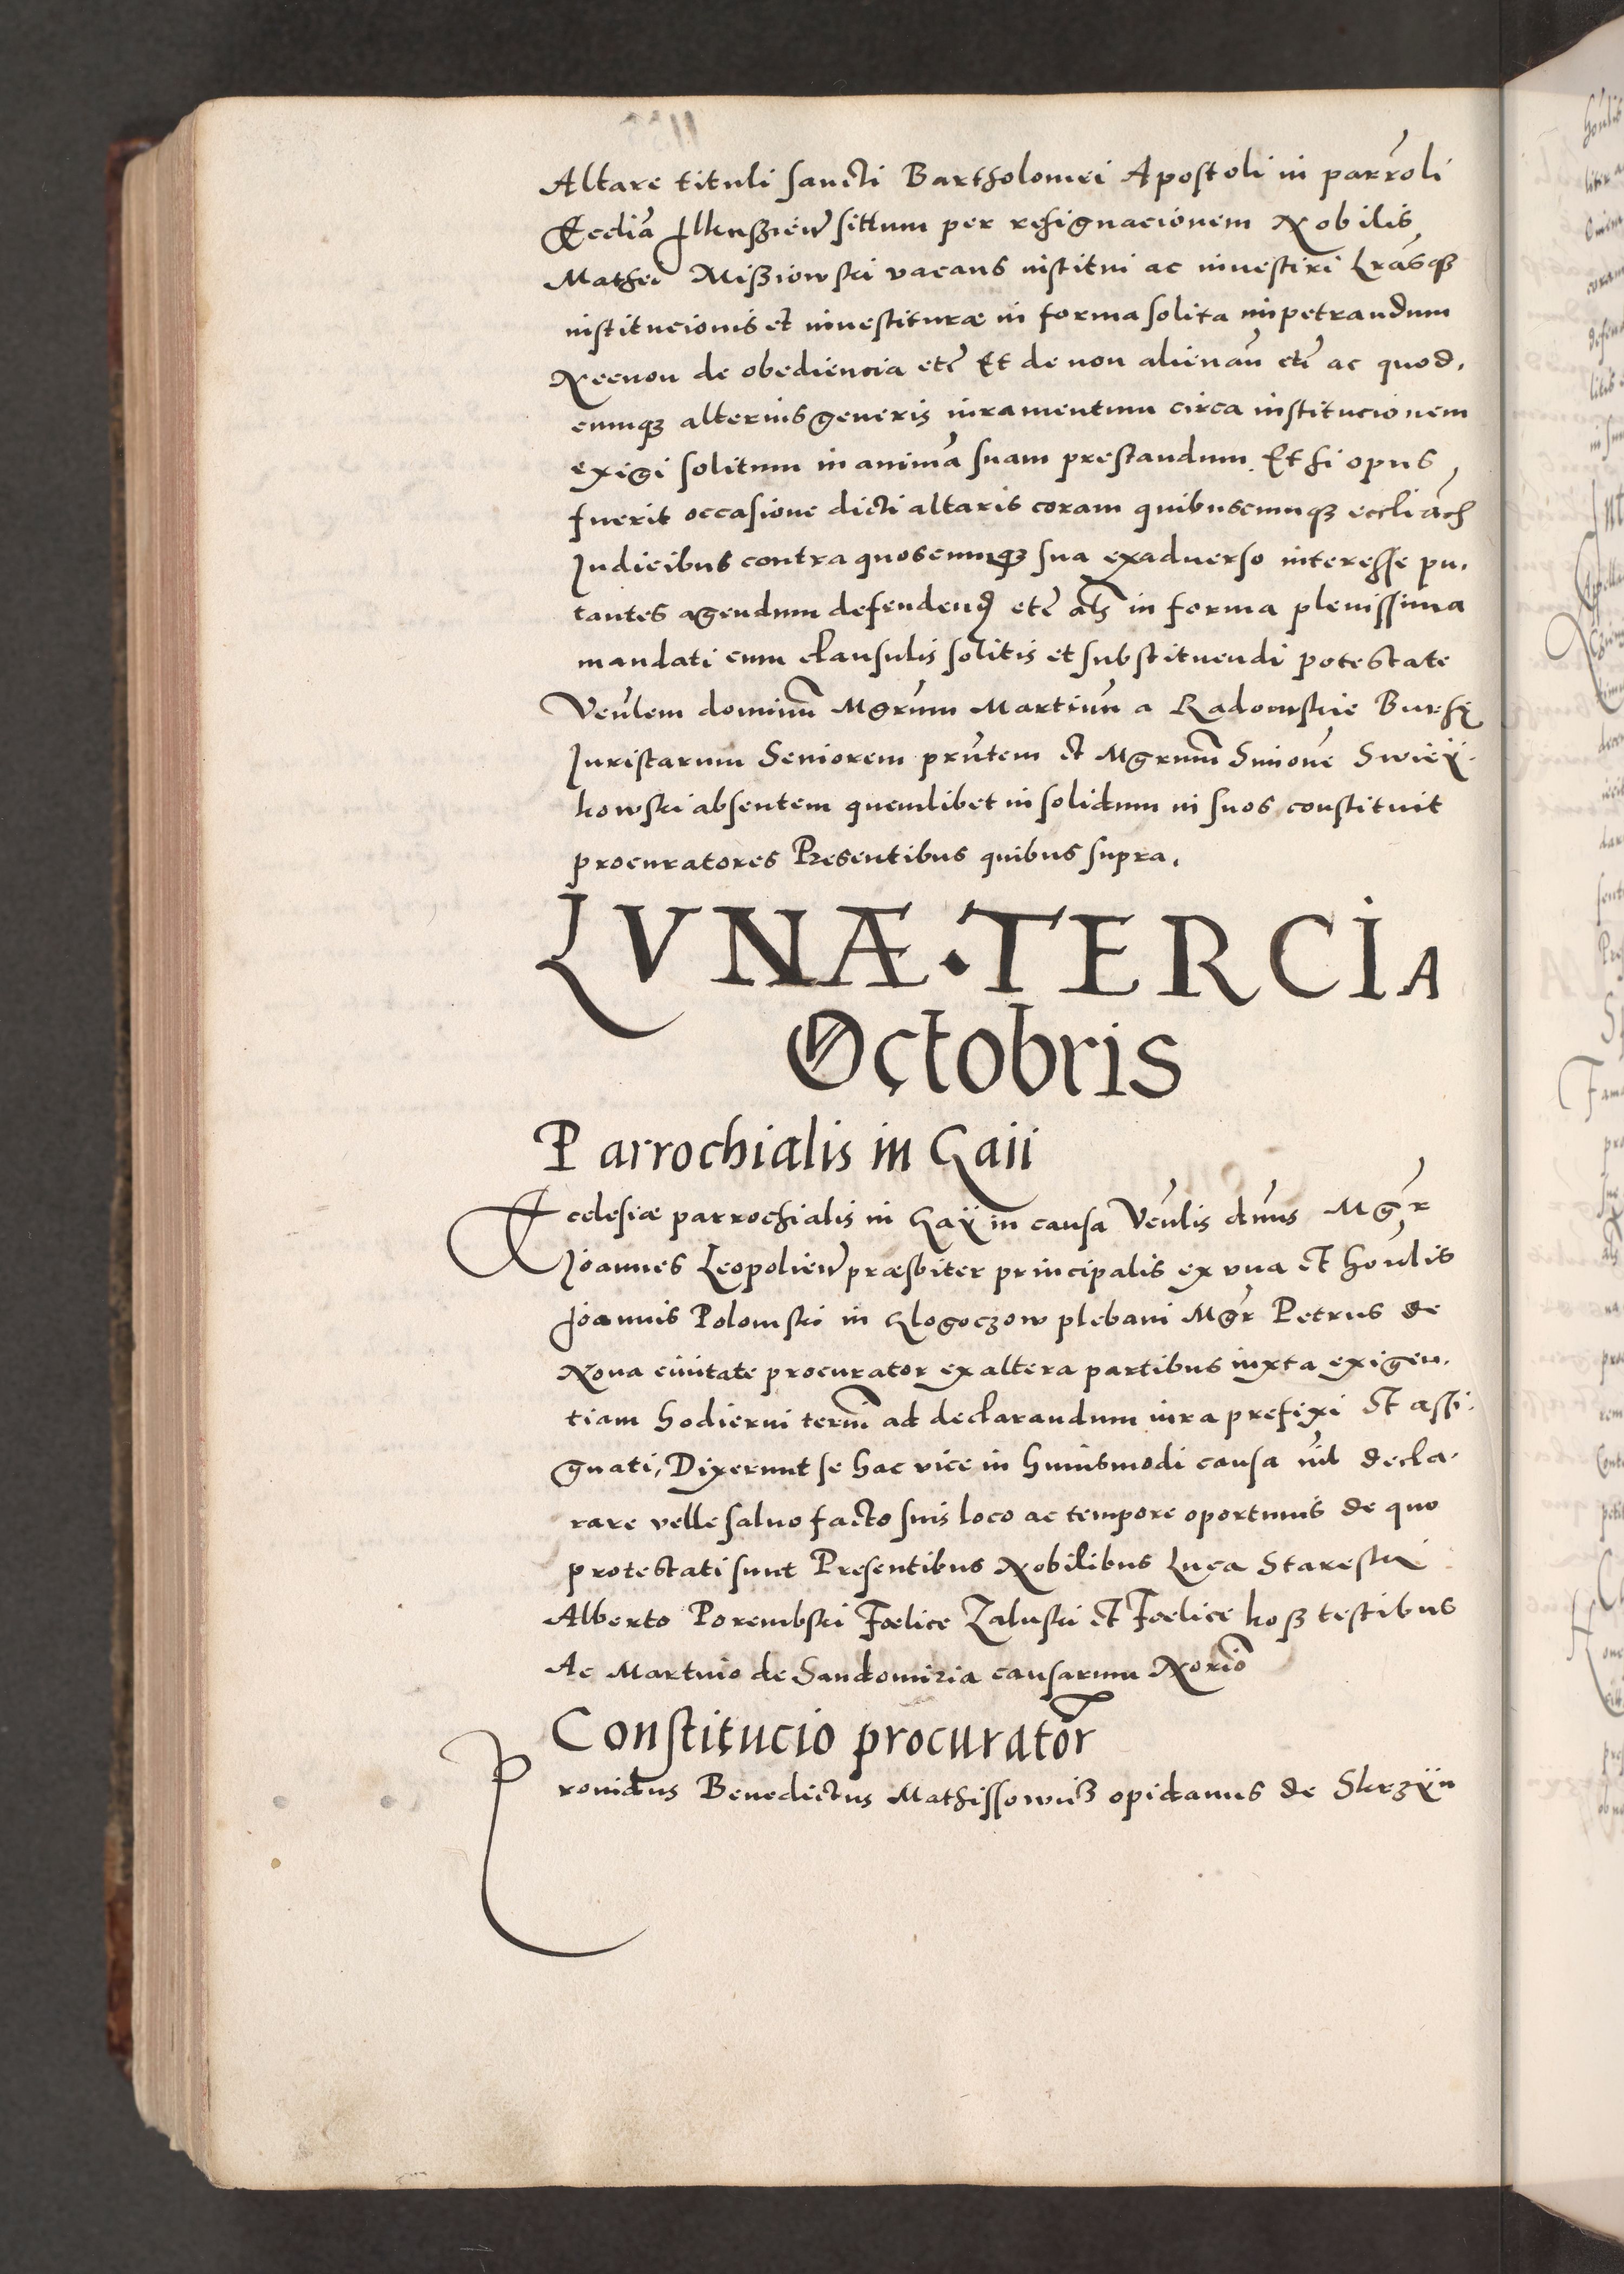 Altare tituli sancti Bartholomei Apostoli in parrōli
Ecclīa Ilkuszień sittum per resignacionem Nobilis
Mathei Misziowski vacans institui ac investiri Lrāsqȝ
institucionis et investituræ in forma solita impetrandum
Necnon de obediencia etc̄ Et de non alienañ etc̄ ac quod,
cumqȝ alterius generis iuramentum circa institucionem
exigi solitum in animā suam prestandum. Et si opus
fuerit occasione dicti altaris coram quibuscumqȝ eccliāch
Iudicibus contra quoscumqȝ sua exadverso interesse pu,
tantes agendum defendend etc̄ als in forma plenissima
mandati cum clausulis solitis et substituendi potestate
Veńlem dominū Mgrūm Martinū a Radomskie Bursȩ
Iuristarum Seniorem prñtem et Mgrnm̄ Simonē Swiey.
kowski absentem quemlibet in solidum in suos constituit
procuratores Presentibus quibus supra.
LVNÆ · TERCIA
Octobris
Parrochialis in Gaii
Ecclesiæ parrochialis in Gaÿ in causa Veńlis dńus Mgr̄
Ioannes Leopolień præsbiter principalis ex una et hońlis
Joannis Polomski in Glogoczow plebani Mgr̄ Petrus de
Nova civitate procurator ex altera partibus iuxta exigen,
tiam hodierni term̄ ad declarandum iura prefixi et assi,
gnati, Dixerunt se hac vice in huiusmodi causa nil decla,
rare velle salvo facto suis loco ac tempore oportunis de quo
protestati sunt Presentibus Nobilibus Luca Stareski
Alberto Porembski Fœlice Zaluski et Fœlice kosz testibus
Ac Martino de Sandomiria causarum Noriō
Constitucio procurator̄
Providus Benedictus Mathissowicz opidanus de Skrzÿn